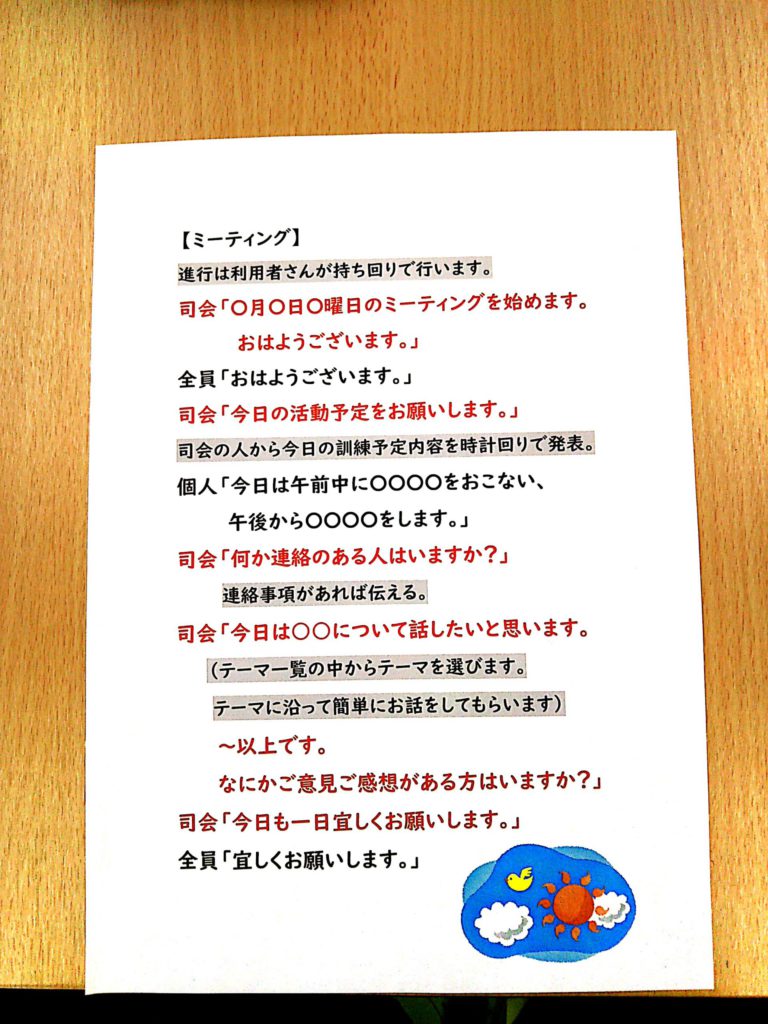 【ミーティング】
進行は利用者さんが持ち回りで行います。
司会「〇月〇日〇曜日のミーティングを始めます。
おはようございます。」
全員「おはようございます。」
司会「今日の活動予定をお願いします。」
司会の人から今日の訓練予定内容を時計回りで発表。
個人「今日は午前中に〇〇〇〇をおこない、
午後から〇〇〇〇をします。」
司会「何か連絡のある人はいますか?」
連絡事項があれば伝える。
司会「今日は〇〇について話したいと思います。
(テーマ一覧の中からテーマを選びます。
テーマに沿って簡単にお話をしてもらいます)
～以上です。
なにかご意見ご感想がある方はいますか?」
司会「今日も一日宜しくお願いします。」
全員「宜しくお願いします。」